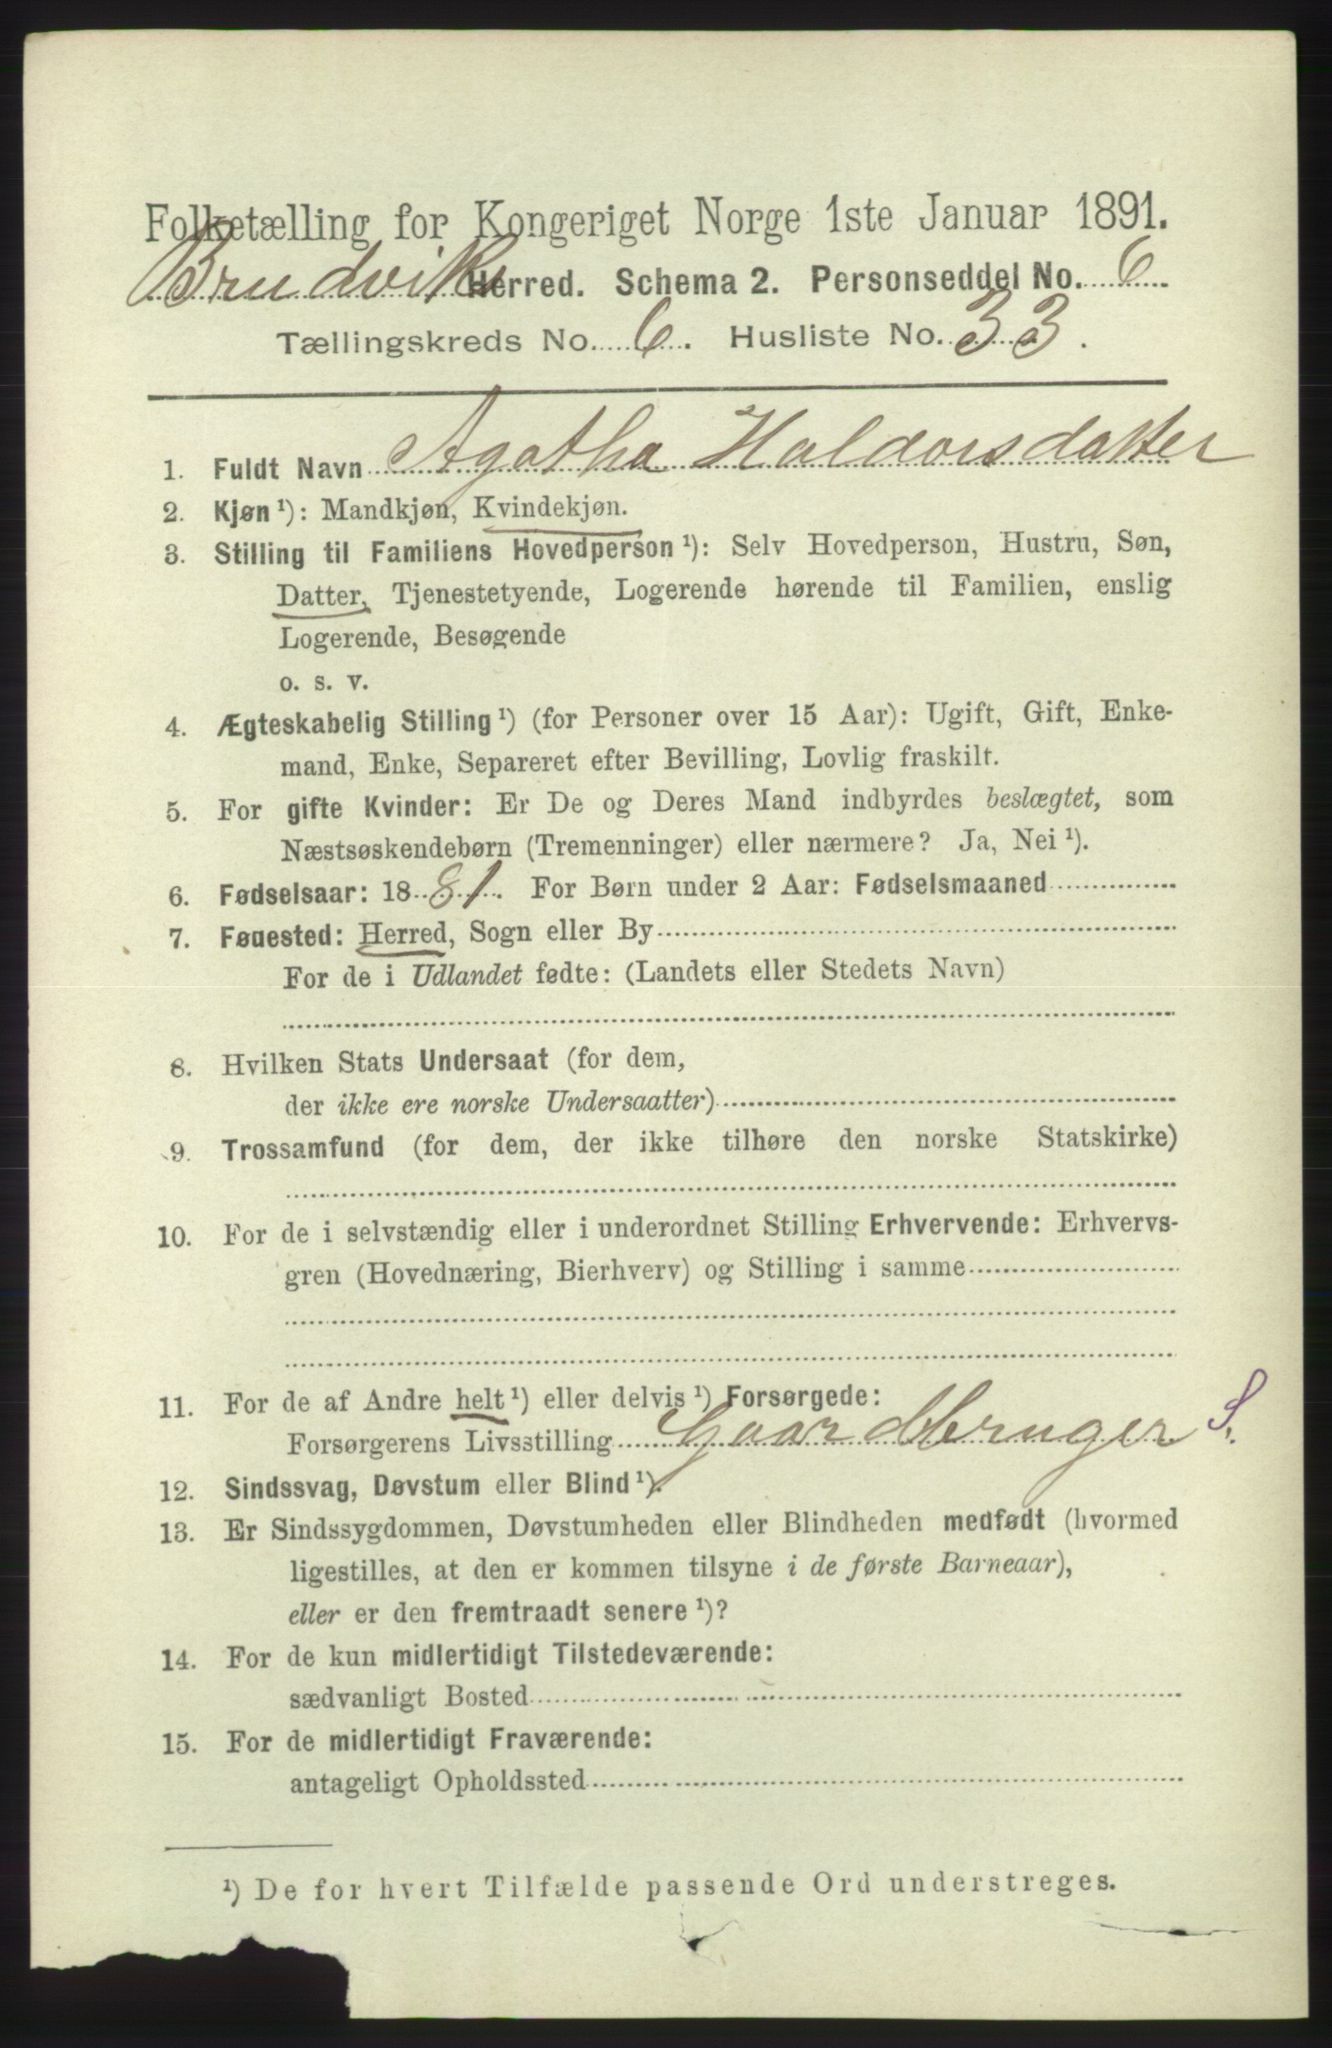 Folketælling for Kongeriget Norge 1ste Januar 1891.
Brudviks Herred. Schema 2. Personseddel No. 6
Tællingskreds No. 6. Husliste No. 33.
1. Fuldt Navn Agatha Haldorsdatter
2. Kjøn ¹): Mandkjøn, Kvindekjøn.
3. Stilling til Familiens Hovedperson ¹): Selv Hovedperson, Hustru, Søn,
Datter, Tjenestetyende, Logerende hørende til Familien, enslig
Logerende, Besøgende
o. s. v.
4. Ægteskabelig Stilling ¹) (for Personer over 15 Aar): Ugift, Gift, Enke-
mand, Enke, Separeret efter Bevilling, Lovlig fraskilt.
5. For gifte Kvinder: Er De og Deres Mand indbyrdes beslægtet, som
Næstsøskendebørn (Tremenninger) eller nærmere? Ja, Nei ¹).
6. Fødselsaar: 1881. For Børn under 2 Aar: Fødselsmaaned
7. Føuested: Herred, Sogn eller By
For de i Udlandet fødte: (Landets eller Stedets Navn)
8. Hvilken Stats Undersaat (for dem,
der ikke ere norske Undersaatter)
9. Trossamfund (for dem, der ikke tilhøre den norske Statskirke)
10. For de i selvstændig eller i underordnet Stilling Erhvervende: Erhvervs-
gren (Hovednæring, Bierhverv) og Stilling i samme
11. For de af Andre helt ¹) eller delvis ¹) Forsørgede:
Forsørgerens Livsstilling Gaardbruger S.
12. Sindssvag, Døvstum eller Blind ¹).
13. Er Sindssygdommen, Døvstumheden eller Blindheden medfødt (hvormed
ligestilles, at den er kommen tilsyne i de første Barneaar),
eller er den fremtraadt senere ¹)?
14. For de kun midlertidigt Tilstedeværende:
sædvanligt Bosted
15. For de midlertidigt Fraværende:
antageligt Opholdssted
¹) De for hvert Tilfælde passende Ord understreges.